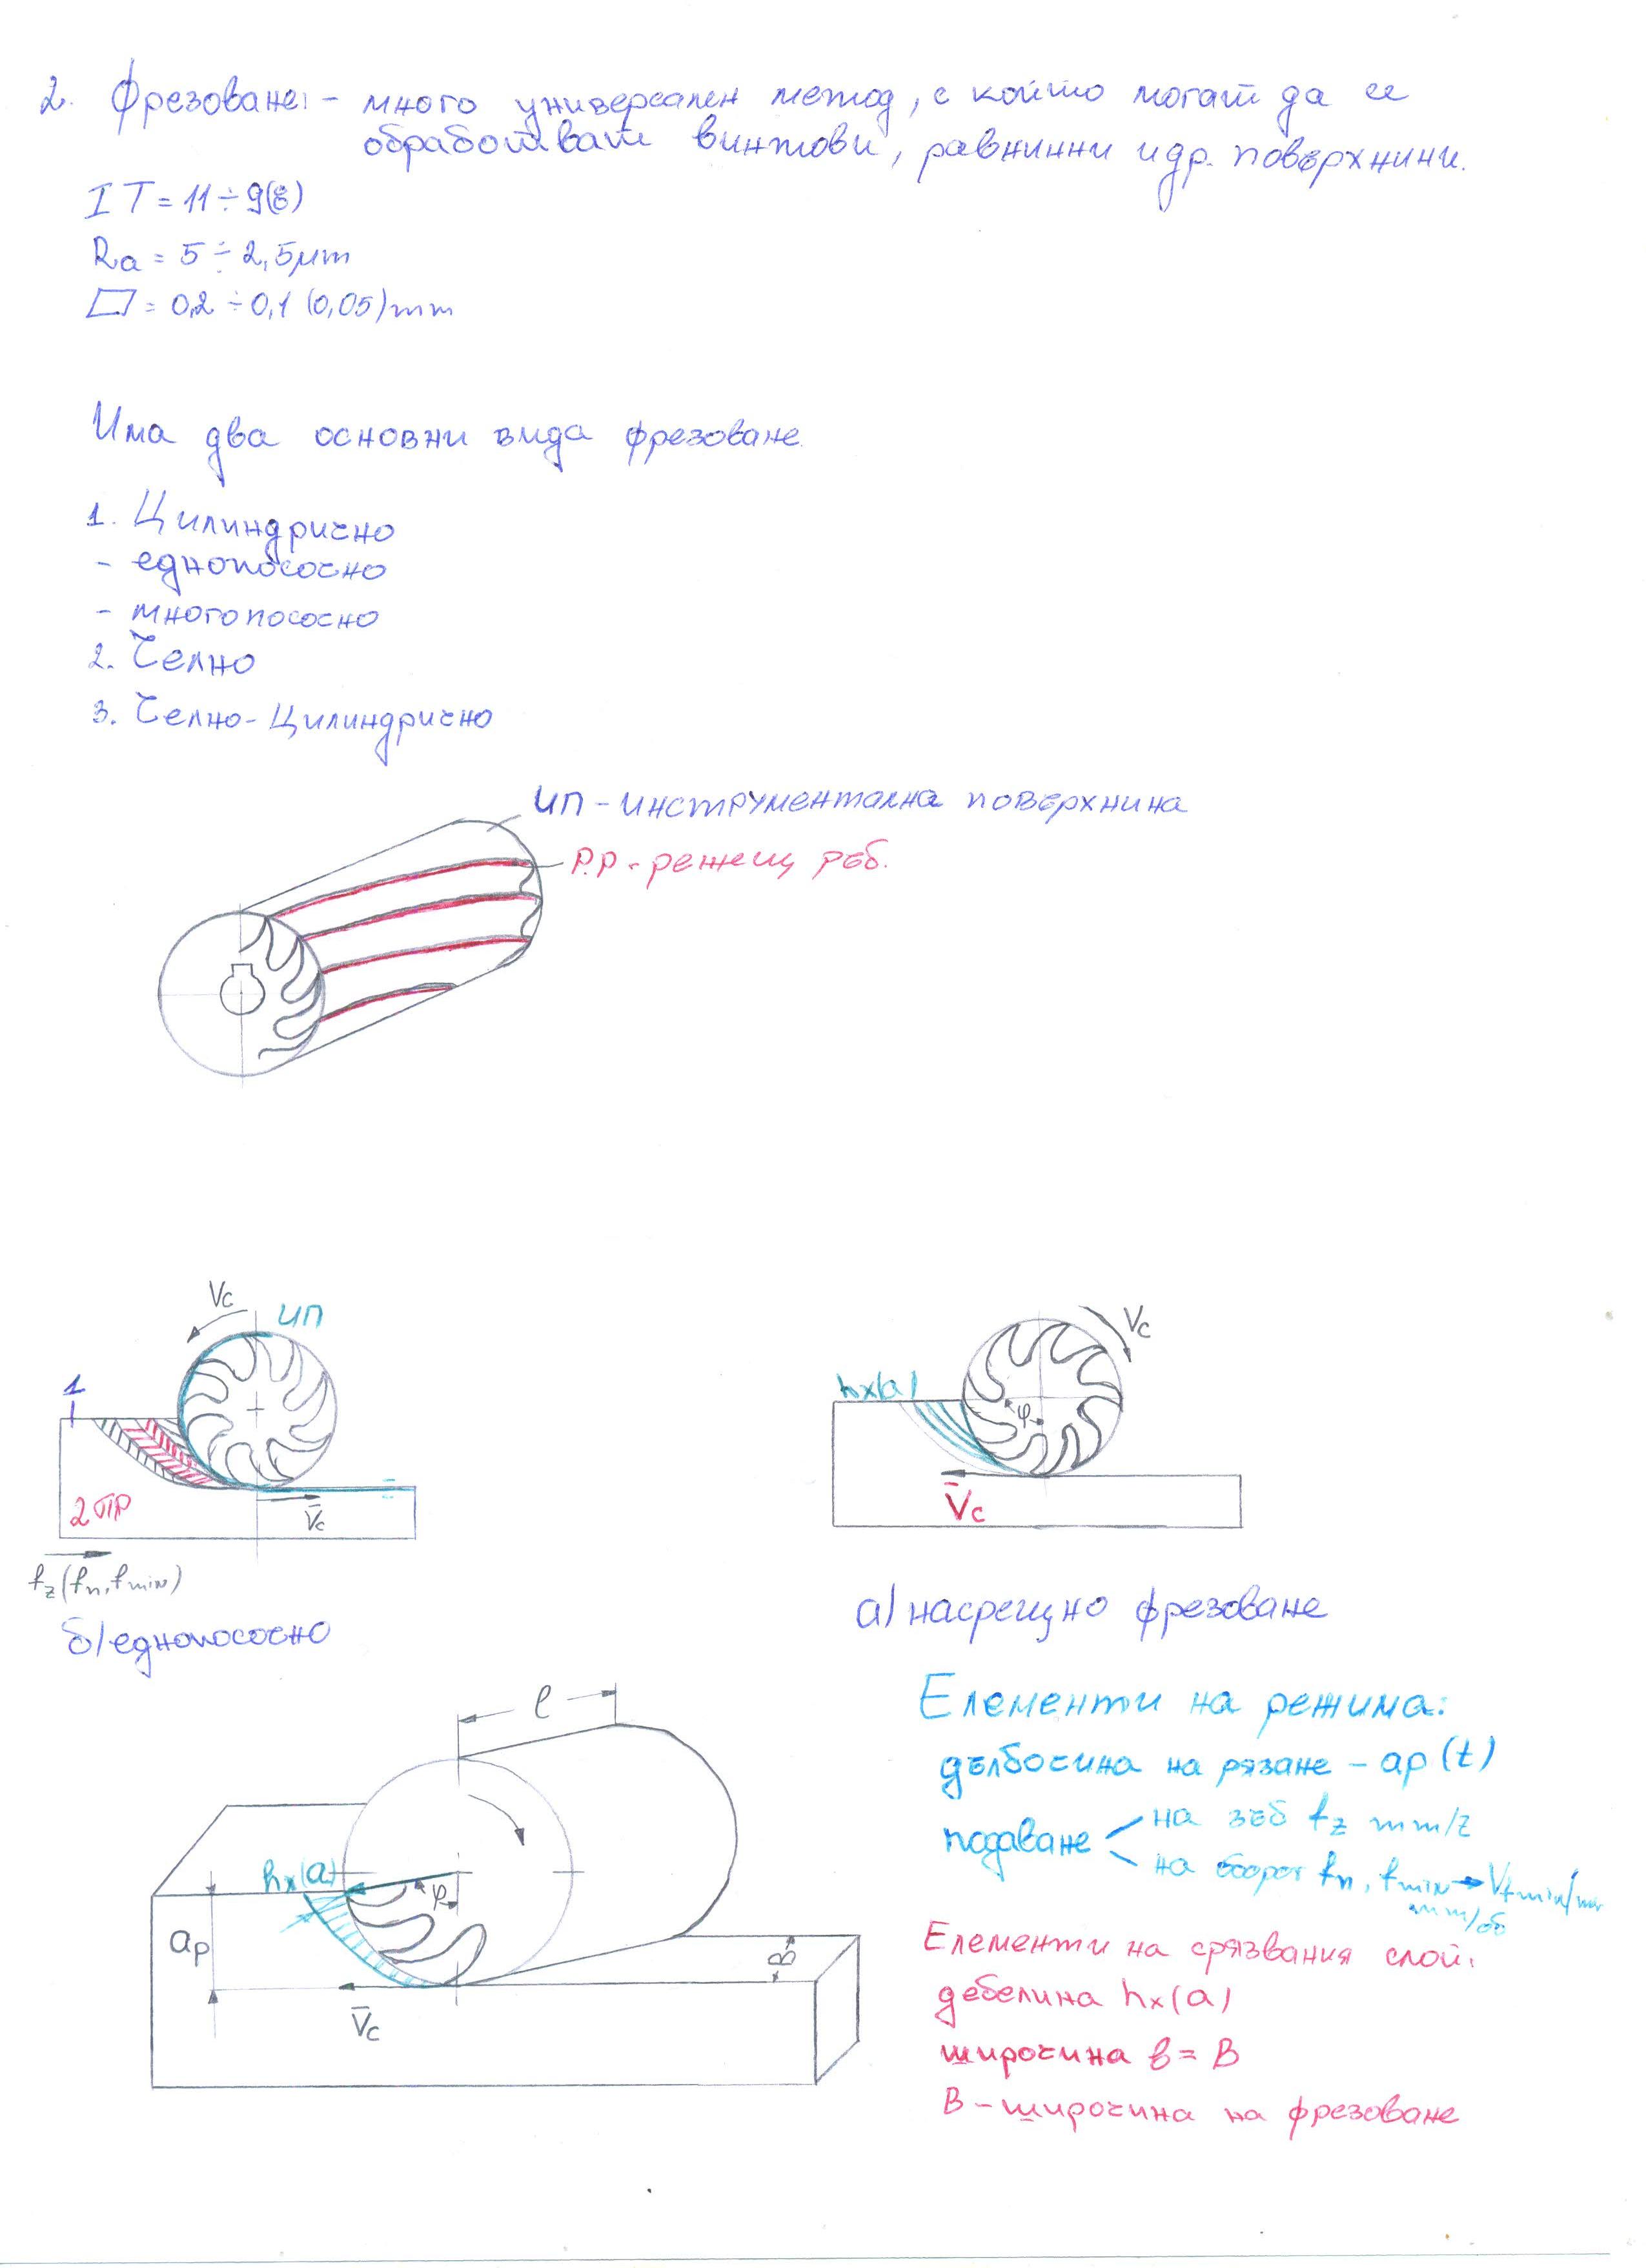 2. Фрезоване: - много универсален метод, с който могат да се
обработват винтови, равнинни и др. повърхнини.
IT = 11 ÷ 9(8)
Ra = 5 ÷ 2,5 μm
▱ = 0,2 ÷ 0,1 (0,05) mm
Има два основни вида фрезоване
1. Цилиндрично
- еднопосочно
- многопосочно
2. Челно
3. Челно-Цилиндрично
ИП - инструментална повърхнина
Р.Р - режещ ръб.
Vc
ИП
1
2 ПР
V̄c
fz (fn, fmin)
б) еднопосочно
Vc
hx(a)
φ
V̄c
а) насрещно фрезоване
l
hx(a)
φ
ap
B
V̄c
Елементи на режима:
дълбочина на рязане - ap (t)
подаване
на зъб fz mm/z
на оборот fn, fmin → Vf
mm/об
Елементи на срязвания слой:
дебелина hx(a)
широчина в = B
B - широчина на фрезоване